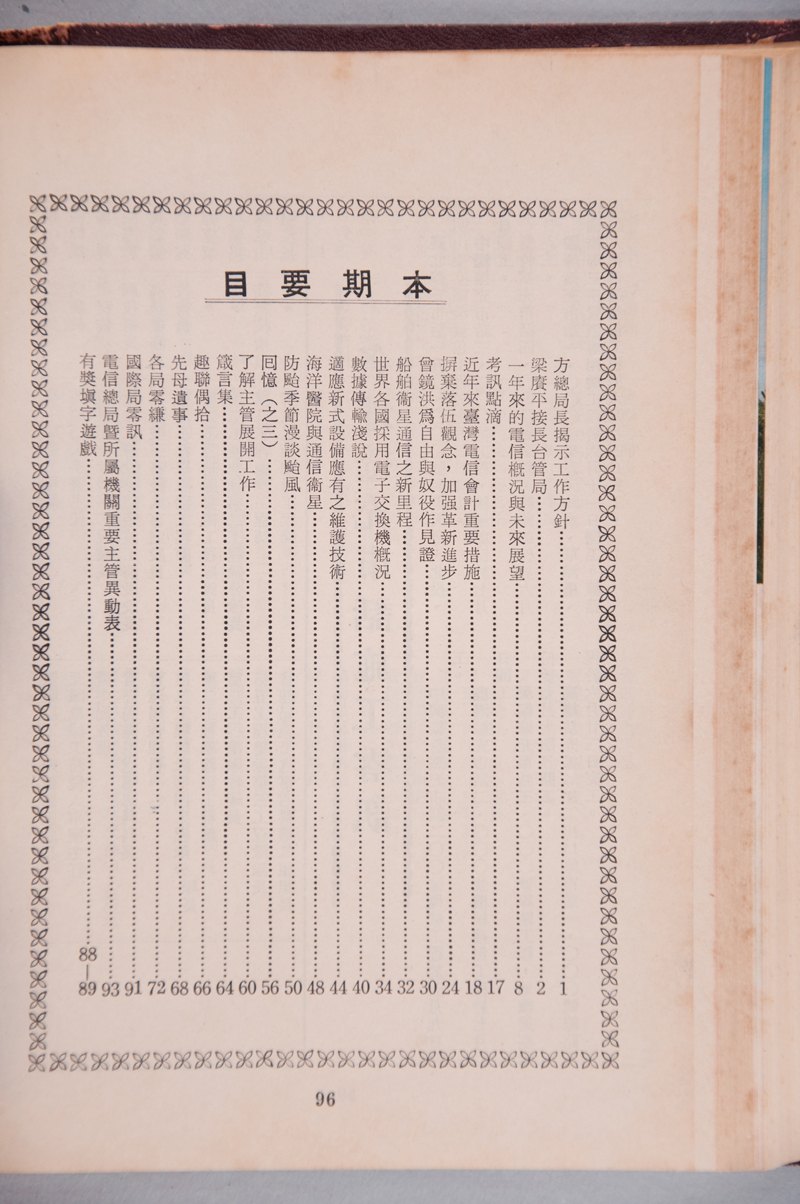 本期要目
方總局長揭示工作方針……1
梁賡平接長台管局……2
一年來的電信概況與未來展望……8
考訊點滴……17
近年來臺灣電信會計重要措施……18
摒棄落伍觀念，加强革新進步……24
曾鏡洪爲自由與奴役作見證……30
船舶衞星通信之新里程……32
世界各國採用電子交換機概況……34
數據傳輸淺說……40
適應新式設備應有之維護技術……44
海洋醫院與通信衞星……48
防颱季節漫談颱風……50
囘憶（之三）……56
了解主管展開工作……60
箴言集……64
趣聯偶拾……66
先母遺事……68
各局零縑……72
國際局零訊……91
電信總局暨所屬機關重要主管異動表……93
有獎塡字遊戲……88—89
96